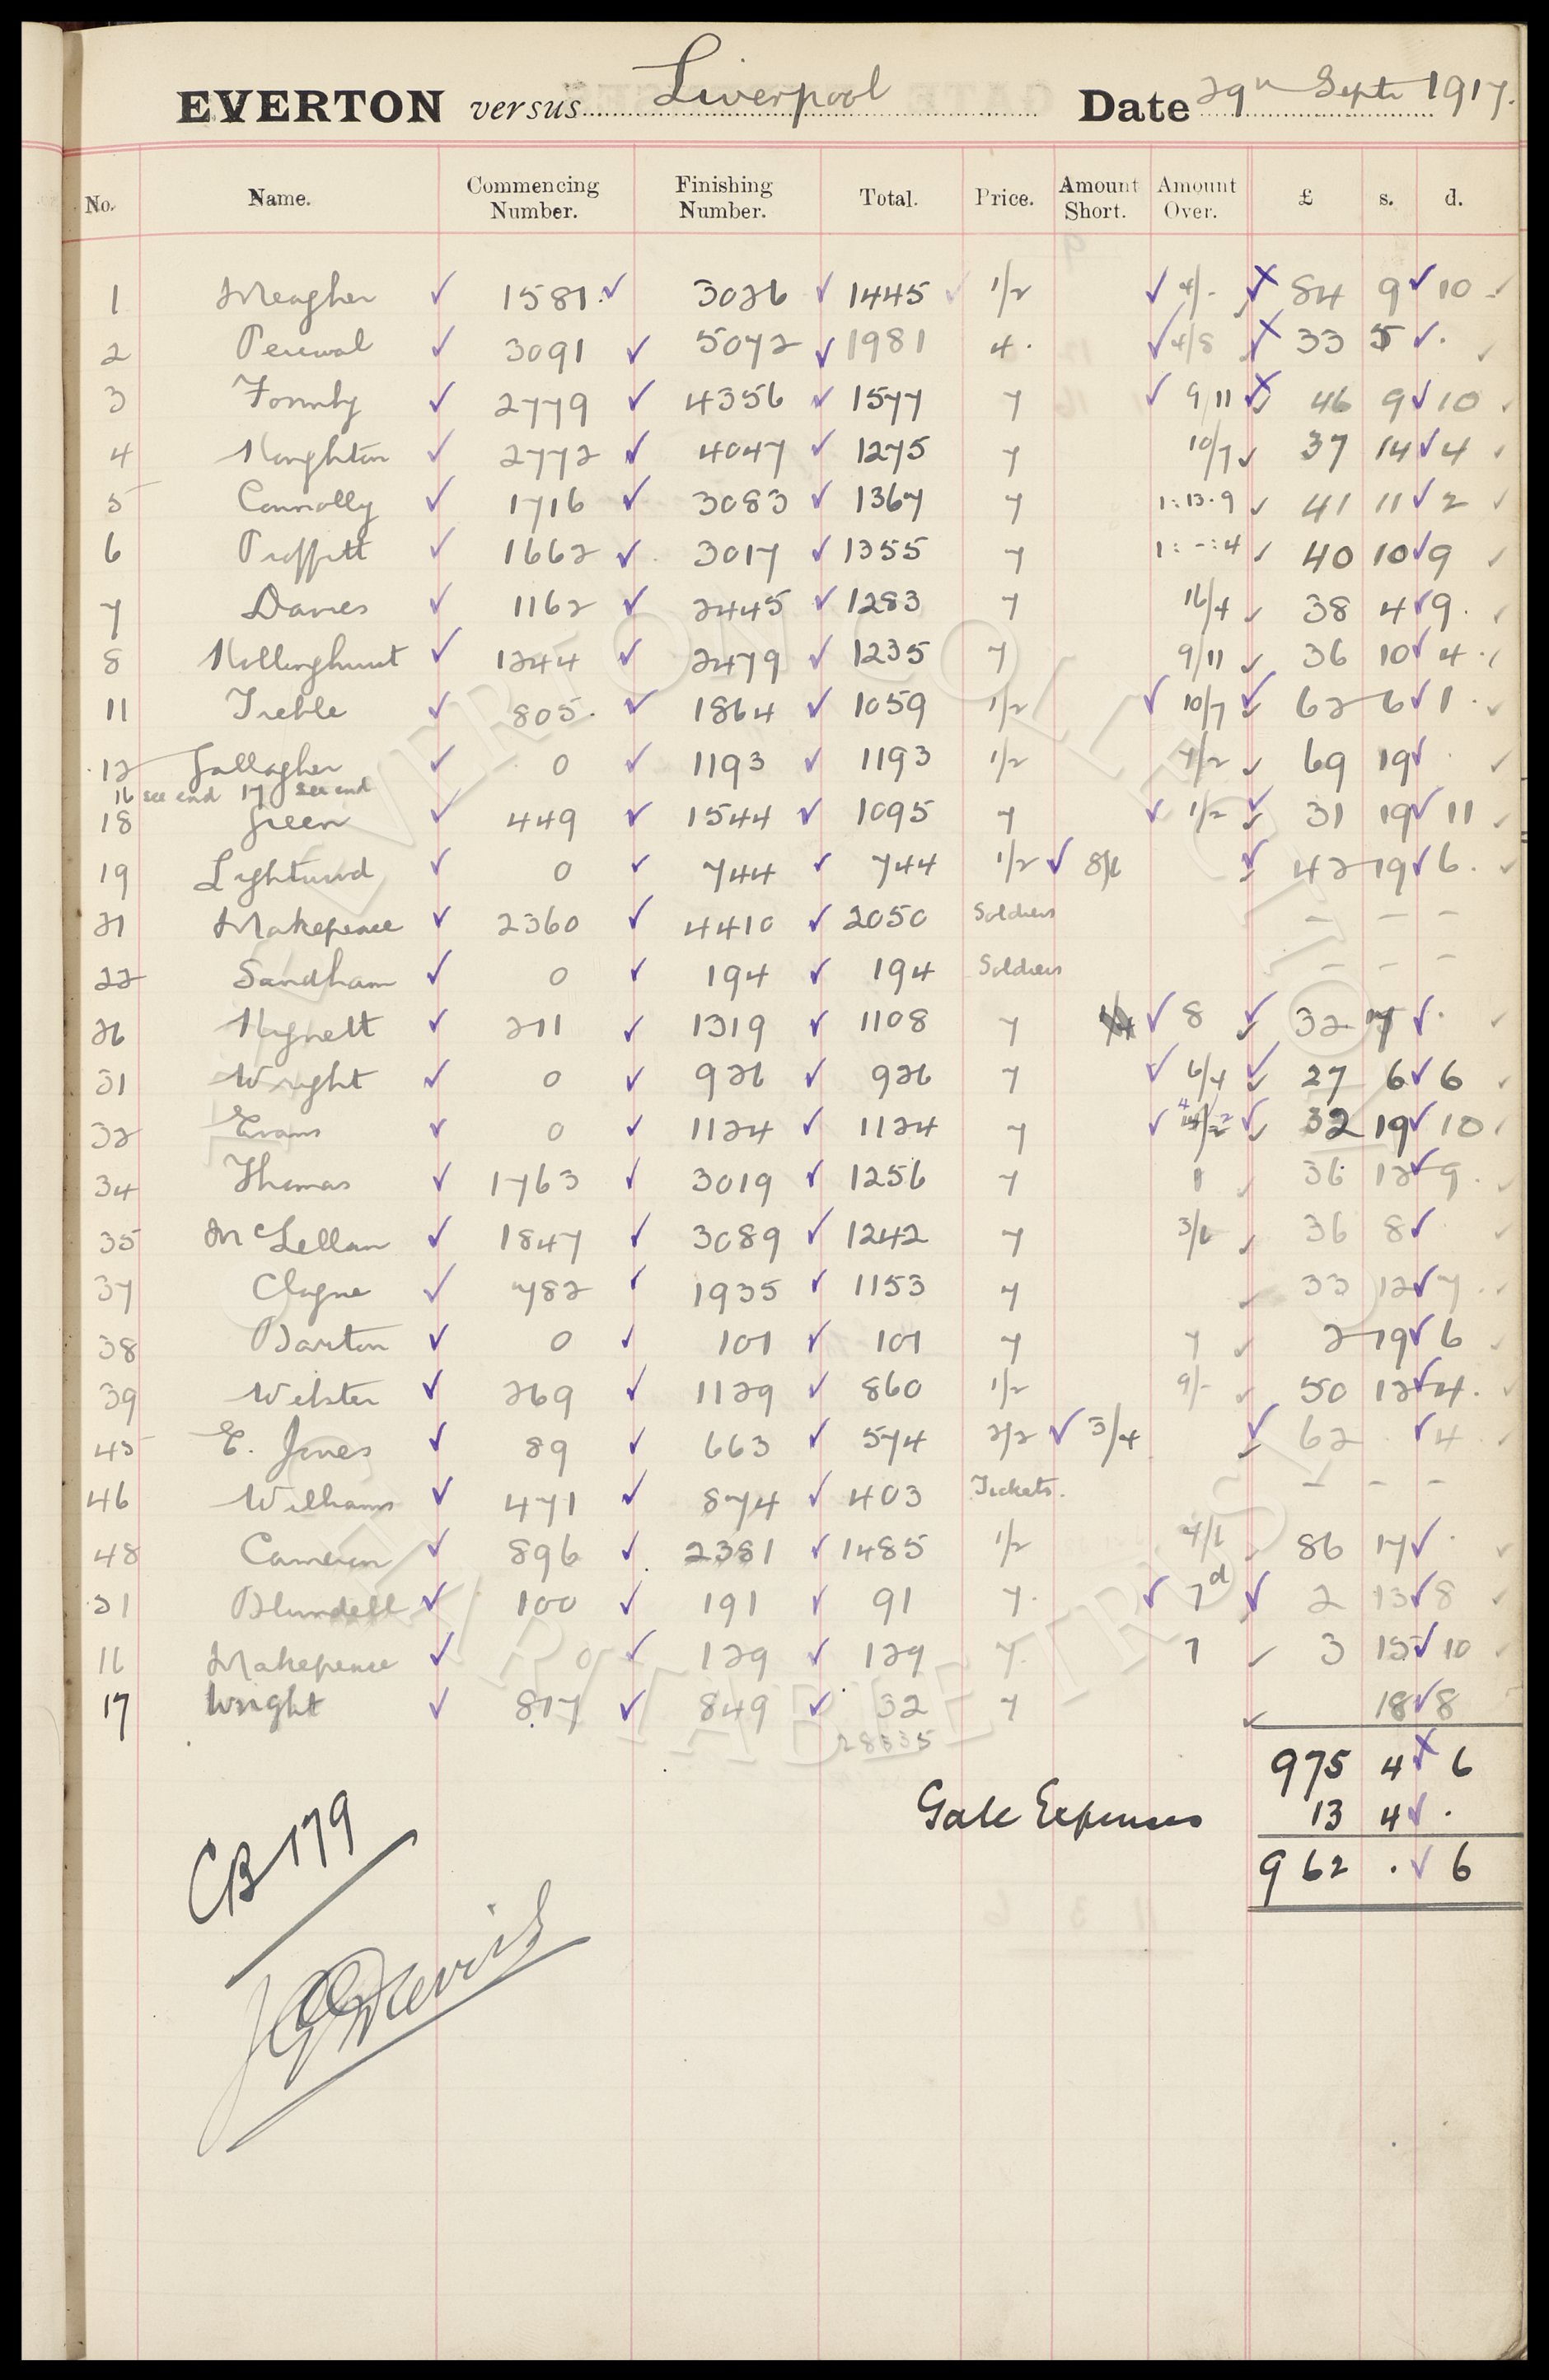 EVERTON versus Liverpool Date 29th Septr 1917.
No. Name. Commencing Number. Finishing Number. Total. Price. Amount Short. Amount Over. £ s. d.
1 Meagher 1581 3026 1445 1/2 4/- 84 9 10
2 Percival 3091 5072 1981 4 4/8 33 5 .
3 Formby 2779 4356 1577 7 9/11 46 9 10
4 Houghton 2772 4047 1275 7 10/7 37 14 4
5 Connolly 1716 3083 1367 7 1:13.9 41 11 2
6 Proffitt 1662 3017 1355 7 1:-:4 40 10 9
7 Davies 1162 2445 1283 7 16/4 38 4 9
8 Hollinghurst 1244 2479 1235 7 9/11 36 10 4
11 Treble 805 1864 1059 1/2 10/7 62 6 1
12 Gallagher 0 1193 1193 1/2 7/2 69 19 .
16 see end 17 see end
18 Green 449 1544 1095 7 1/2 31 19 11
19 Lightwood 0 744 744 1/2 8/6 42 19 6
21 Makepeace 2360 4410 2050 Soldiers - - -
22 Sandham 0 194 194 Soldiers - - -
26 Hignett 211 1319 1108 7 8 32 7 .
31 Wright 0 926 926 7 6/4 27 6 6
32 Evans 0 1124 1124 7 32 19 10
34 Thomas 1763 3019 1256 7 1 36 12 9
35 McLellan 1847 3089 1242 7 3/6 36 8
37 Clague 782 1935 1153 7 33 12 7
38 Barton 0 101 101 7 7 2 19 6
39 Webster 269 1129 860 1/2 9/- 50 12 4
45 E. Jones 89 663 574 2/2 3/4 62 . 4
46 Williams 471 874 403 Tickets. - - -
48 Cameron 896 2381 1485 1/2 4/6 86 17 .
51 Blundell 100 191 91 7 7d 2 13 8
16 Makepeace 0 129 129 7 7 3 15 10
17 Wright 817 849 32 7 18 8
28335
975 4 6
Gate Expenses 13 4 .
962 . 6
CB 179
EVERTON COLLECTION
CHARITABLE TRUST